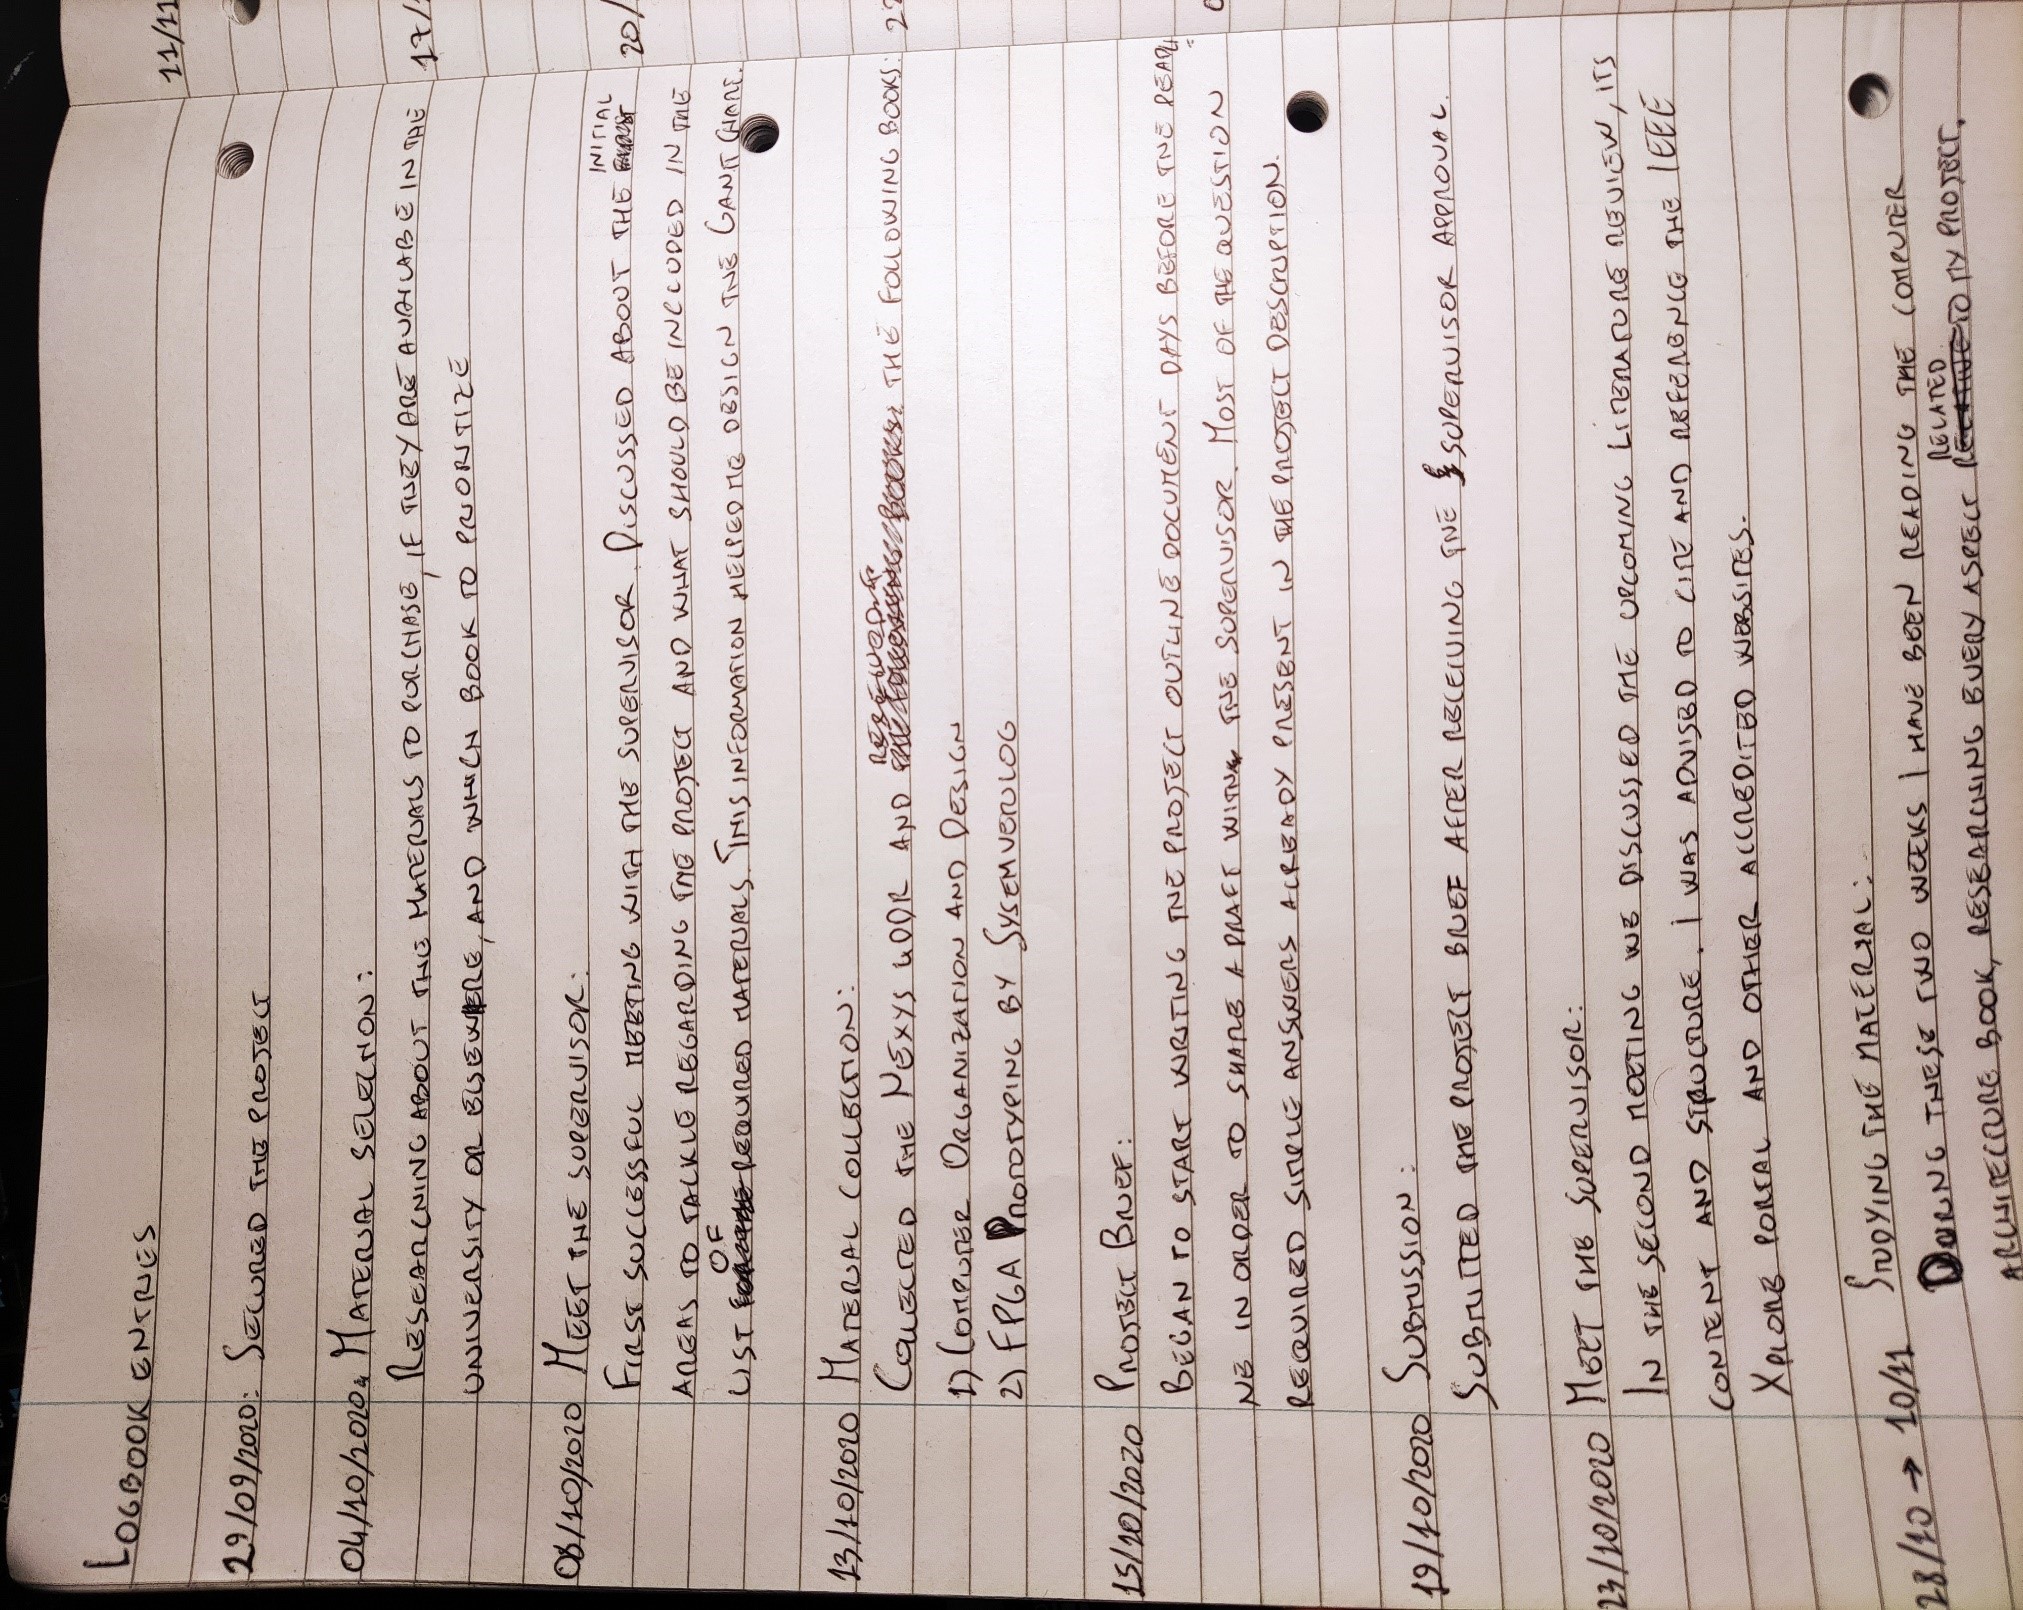 LOGBOOK ENTRIES
11/11
29/09/2020: SECURED THE PROJECT
04/10/2020 MATERIAL SELECTION:
RESEARCHING ABOUT THE MATERIALS TO PURCHASE, IF THEY ARE AVAILABE IN THE
17/
UNIVERSITY OR ELSEWERE, AND WHICH BOOK TO PRIORITIZE
08/10/2020 MEET THE SUPERVISOR:
INITIAL
FIRST SUCCESSFUL MEETING WITH THE SUPERVISOR. DISCUSSED ABOUT THE
20/
AREAS TO TACKLE REGARDING THE PROJECT AND WHAT SHOULD BE INCLUDED IN THE
OF
LIST FOR THE REQUIRED MATERIALS. THIS INFORMATION HELPED ME DESIGN THE GANTT CHART.
13/10/2020 MATERIAL COLLECTION:
COLLECTED THE NEXYS 4DDR AND THE FOLLOWING BOOKS: THE FOLLOWING BOOKS:
1) COMPUTER ORGANIZATION AND DESIGN
2) FPGA PROTOTYPING BY SYSEMVERILOG
15/10/2020 PROJECT BRIEF:
BEGAN TO START WRITING THE PROJECT OUTLINE DOCUMENT DAYS BEFORE THE DEADLI=
NE IN ORDER TO SHARE A DRAFT WITH THE SUPERVISOR. MOST OF THE QUESTION
REQUIRED SIMPLE ANSWERS ALREADY PRESENT IN THE PROJECT DESCRIPTION.
19/10/2020 SUBMISSION:
SUBMITTED THE PROJECT BRIEF AFTER RECEIVING THE SUPERVISOR APPROVAL.
23/10/2020 MEET THE SUPERVISOR:
IN THE SECOND MEETING WE DISCUSSED THE UPCOMING LITERATURE REVIEW, ITS
CONTENT AND STRUCTURE. I WAS ADVISED TO CITE AND REFERENCE THE IEEE
XPLORE PORTAL AND OTHER ACCREDITED WEBSITES.
28/10 → 10/11 STUDYING THE MATERIAL:
DURING THESE TWO WEEKS I HAVE BEEN READING THE COMPUTER
RELATED
ARCHITECTURE BOOK, RESEARCHING EVERY ASPECT RELATIVE TO MY PROJECT.